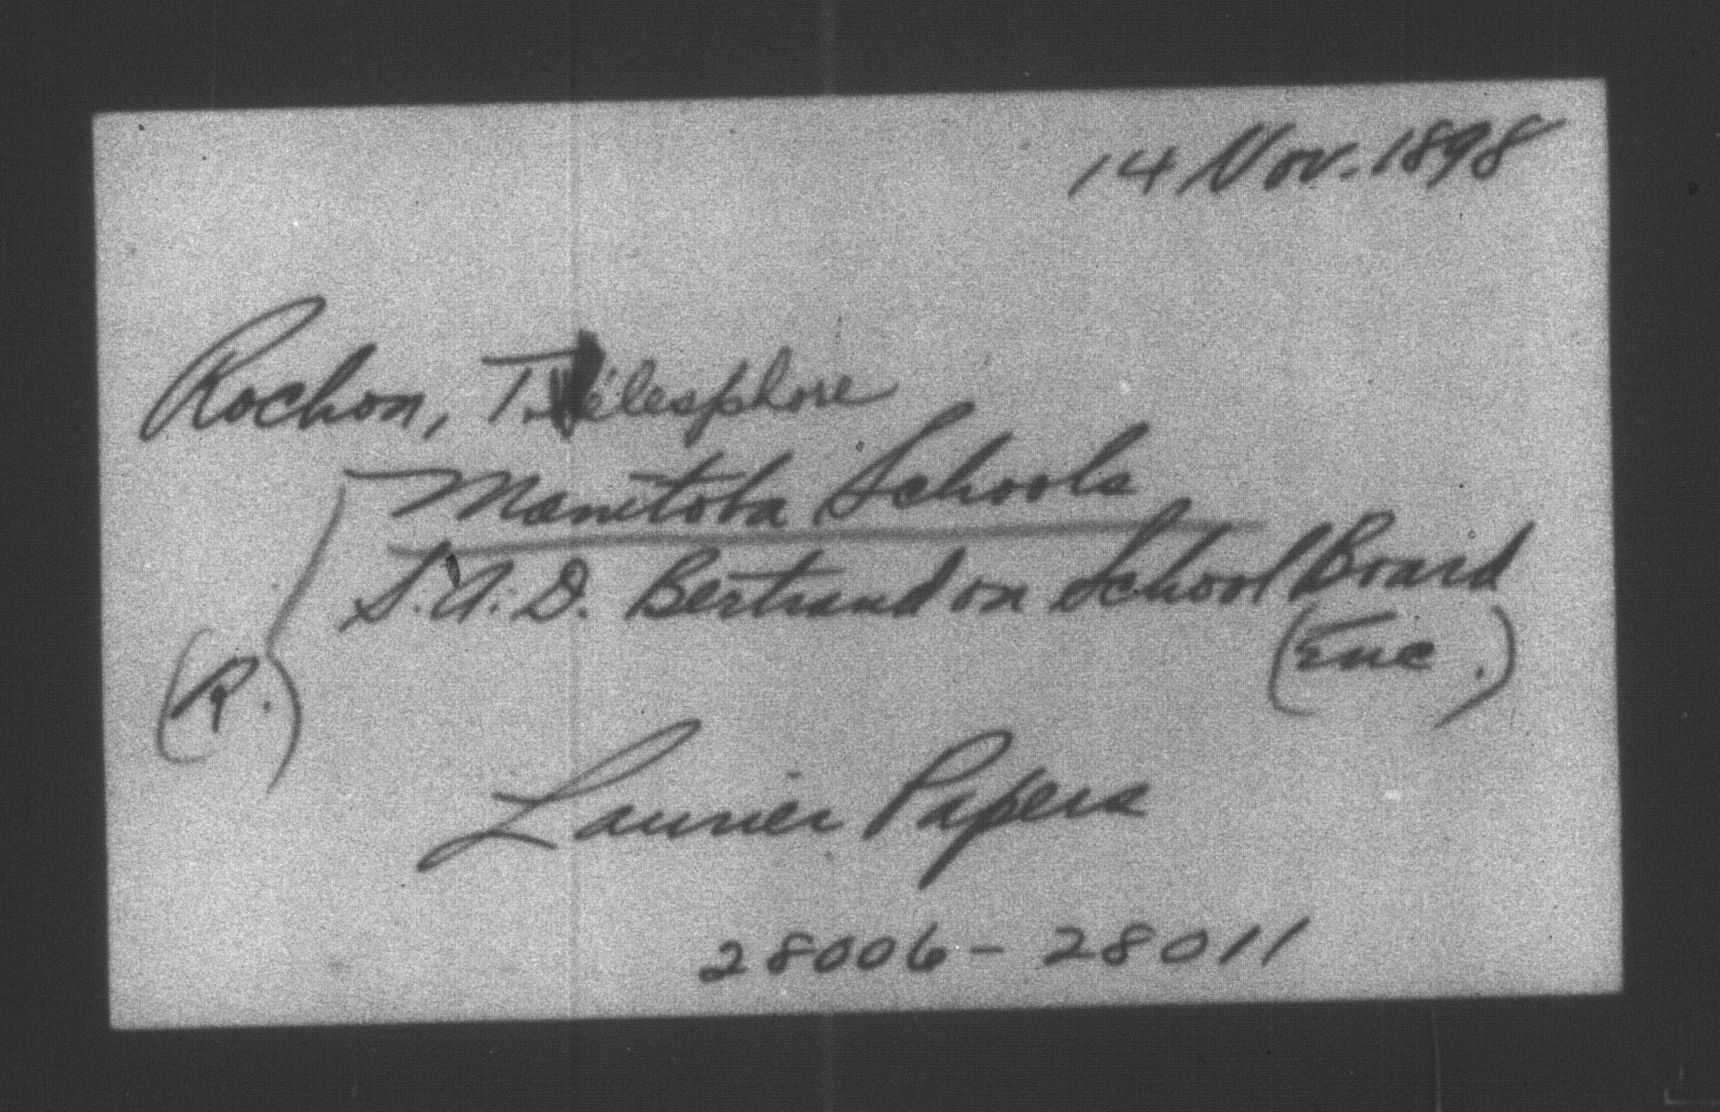 14 Nov. 1898
Rochon, Télesphore
Manitoba Schools
S.A.D. Bertrand on School Board
(R.)
(Enc.)
Laurier Papers
28006 - 28011